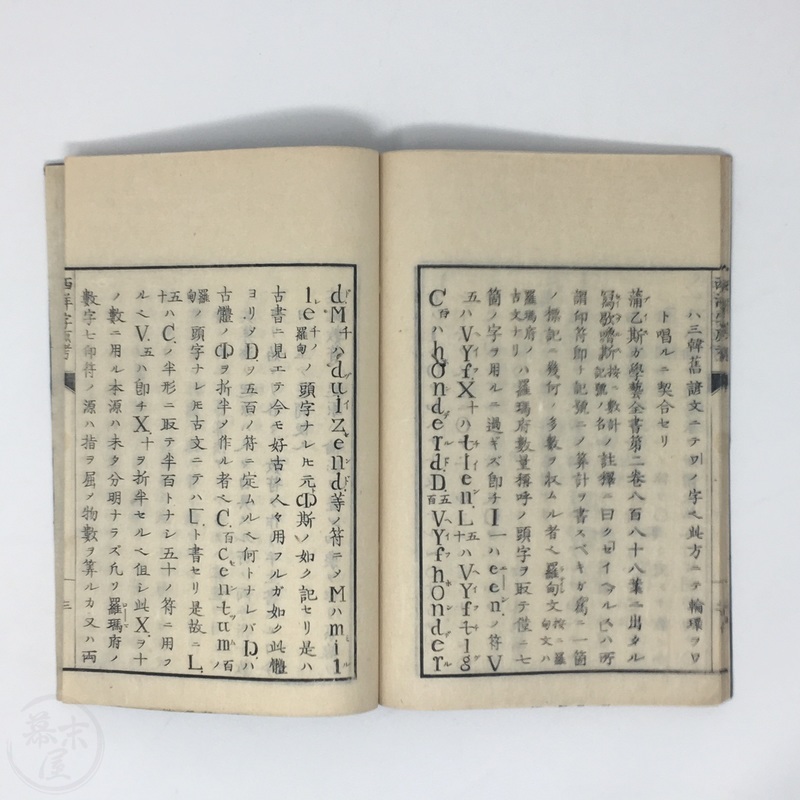 ハ三韓舊諺文ニテワノ字ヘ此方ニテ輪環ヲワ
ト唱ルニ契合セリ
蒲乙斯ガ學藝全書第二卷八百八十八葉ニ出タル
ノ註釋ニ曰ク
謂印符印チ記號ニノ算計ヲ書スベキガ爲ニ一箇
ノ標記ニ幾何ノ多數ヲ収ムル者ヘ羅甸文
羅瑪府ノハ羅瑪府數量稱呼ノ頭字ヲ取テ僅ニ七
箇ノ字ヲ用ルニ過ギズ即チI一ハeen.ノ符V
五ハVyfX十ハtien.L五十ハVyftig
C百ハhonderdD.五百Vyfhonder
d.M千ハduizend.等ノ符ニノMハmil
le羅甸ノ頭字ナレヒ元斯ノ如ク記セリ是ハ
古書ニ見エテ今モ好古ノ人々用フルガ如ク此體
ヨリノD.ヲ五百ノ符ニ定ムルヘ何トナレバD.ハ
古體ノヲ折半ノ作ル者ヘC.百centum.百
羅甸ノ頭字ナレモ古文ニテハ匸ト書セリ是故ニL.
五十ハC.ノ半形ニ取テ半百トナシ五十ノ符ニ用フ
ルヘV.五ハ即チX十ヲ折半セルヘ但シ此X.ヲ十
ノ數ニ用ル本源ハ未タ分明ナラズ凡ソ羅瑪府ノ
數字七印符ノ源ハ指ヲ屈ノ物數ヲ算ルカ又ハ兩
西洋字原考
三
幕末屋